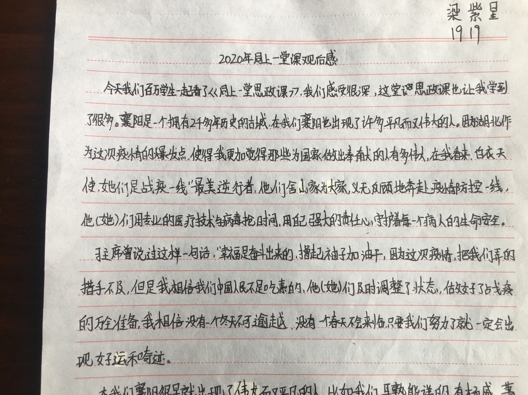 梁紫星
1919
2020年同上一堂课观后感
今天我们百万学生一起看了《同上一堂思政课》,我们感受很深,这堂思政课也让我学到
了很多。襄阳是一个拥有2千多年历史的古城,在我们襄阳也出现了许多平凡而又伟大的人。因为湖北作
为这次疫情的爆发点,使得我更加觉得那些为国家做出奉献的人有多伟大,在我看来,白衣天
使,她们是战疫一线"最美逆行者,他们舍小家为大家,义无反顾地奔赴疫情防控一线,
他(她)们用专业的医疗技术与病毒抢时间,用自己强大的责任心,守护着每一个病人的生命安全。
习主席曾说过这样一句话,"幸福是奋斗出来的,撸起袖子加油干,因为这次疫情,把我们弄的
措手不及,但是我相信我们中国人民不是吃素的,他(她)们及时调整了状态,做好了占战疫
的万全准备,我相信没有一个冬天不可逾越,没有一个春天不会来临,只要我们努力了就一定会出
现好运和奇迹。
在我们襄阳很早就出现了伟大而又平凡的人,比如我们